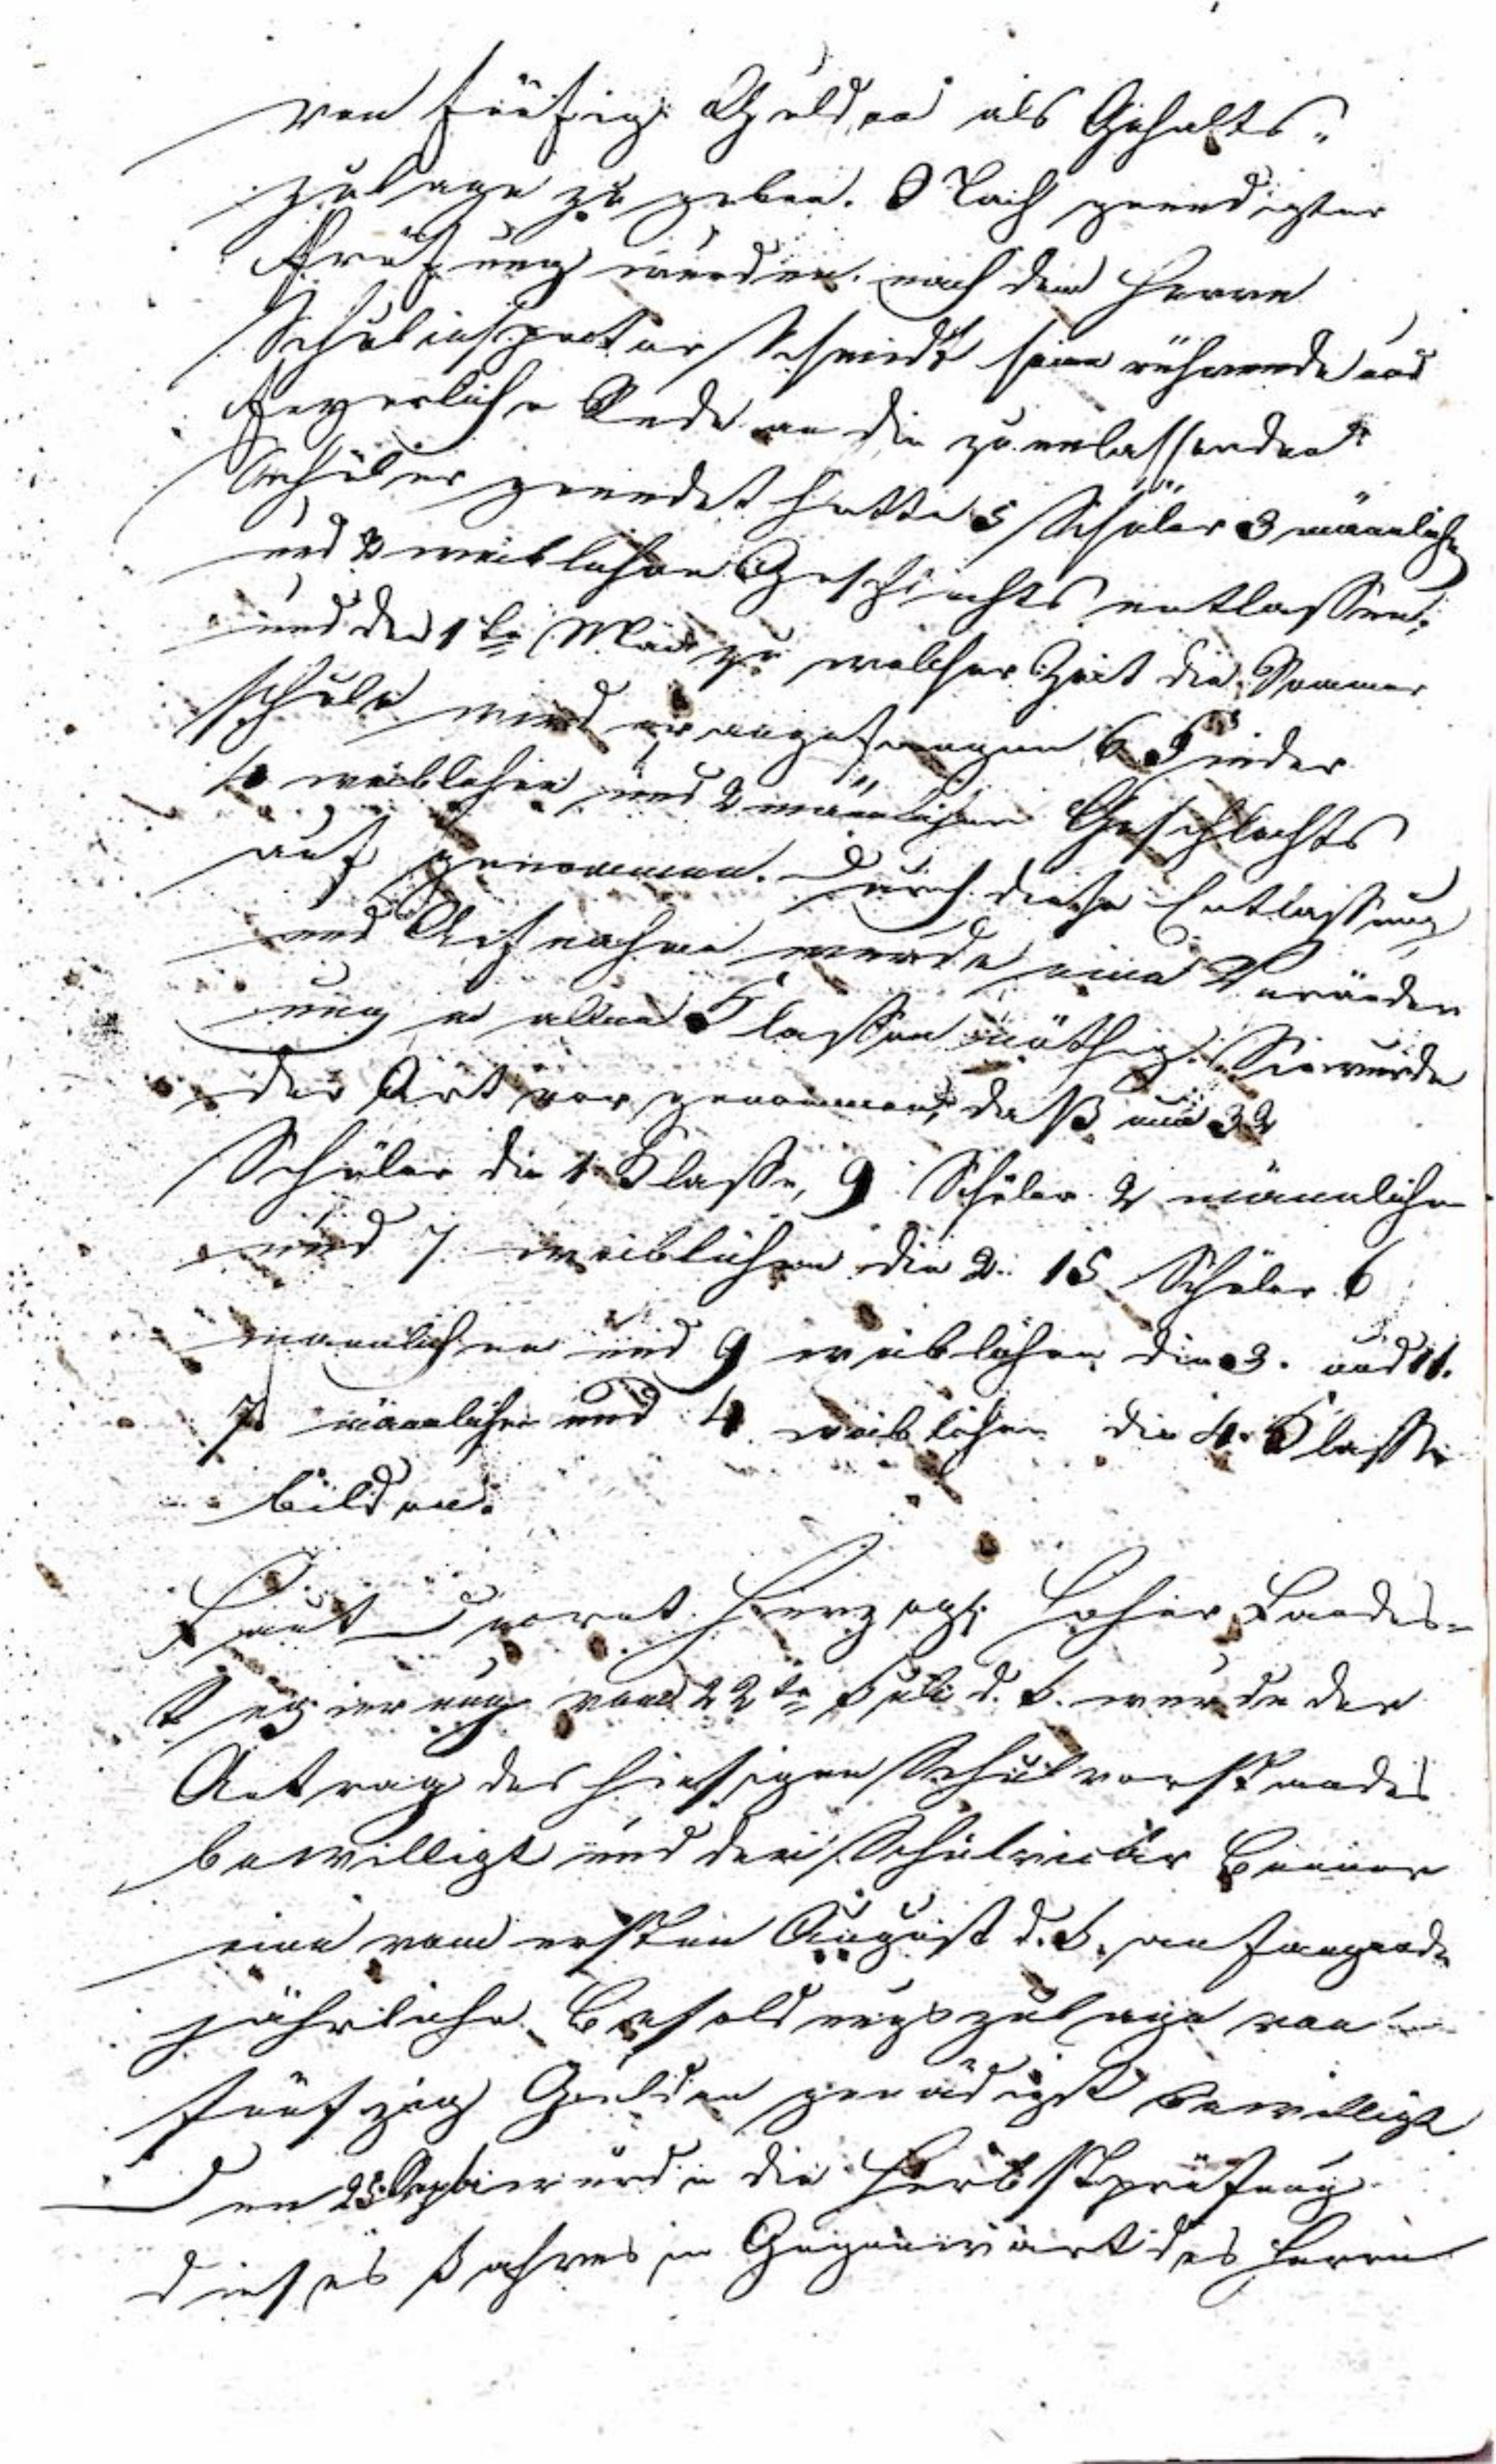 von fünfzig Gulden als Gehalts-
zulage zu geben. Nach geendigter
Prüfung wurden, nach dem Herr
Schulinspector Schmidt seine rührende und
feyerliche Rede an die zu entlassenden
Schüler geendet hatte 5 Schüler 3 männlichen
und 2 weiblichen Geschlechts entlassen,
und den 1te Mai zu welcher Zeit die Sommer
schule wird angefangen 6 Kinder
4 weiblichen und 2 männlichen Geschlechts
auf genommen. Durch diese Entlassung
und Aufnahme wurde eine Veränder
ung in allen Klassen nöthig. Sie wurde
der Art vor genommen, daß nun 32
Schüler die 1 Klasse, 9 Schüler 2 männlichen
und 7 weiblichen die 2. 15 Schüler 6
männlichen und 9 weiblichen die 3. und 11.
7 männlichen und 4 weiblichen die 4. Klasse
bilden.
Laut Decret Herzogl. hoher Landes-
Regierung vom 22te Juli d. J. wurde der
Antrag des hiesigen Schulvorstandes
bewilligt und dem Schulvicar
eine vom ersten August d. J. anfangende
jährliche Besoldungszulage von
fünfzig Gulden gnädigst bewilligt
Den 25. Septbr wurde die Herbstprüfung
dieses Jahres in Gegenwart des Herrn